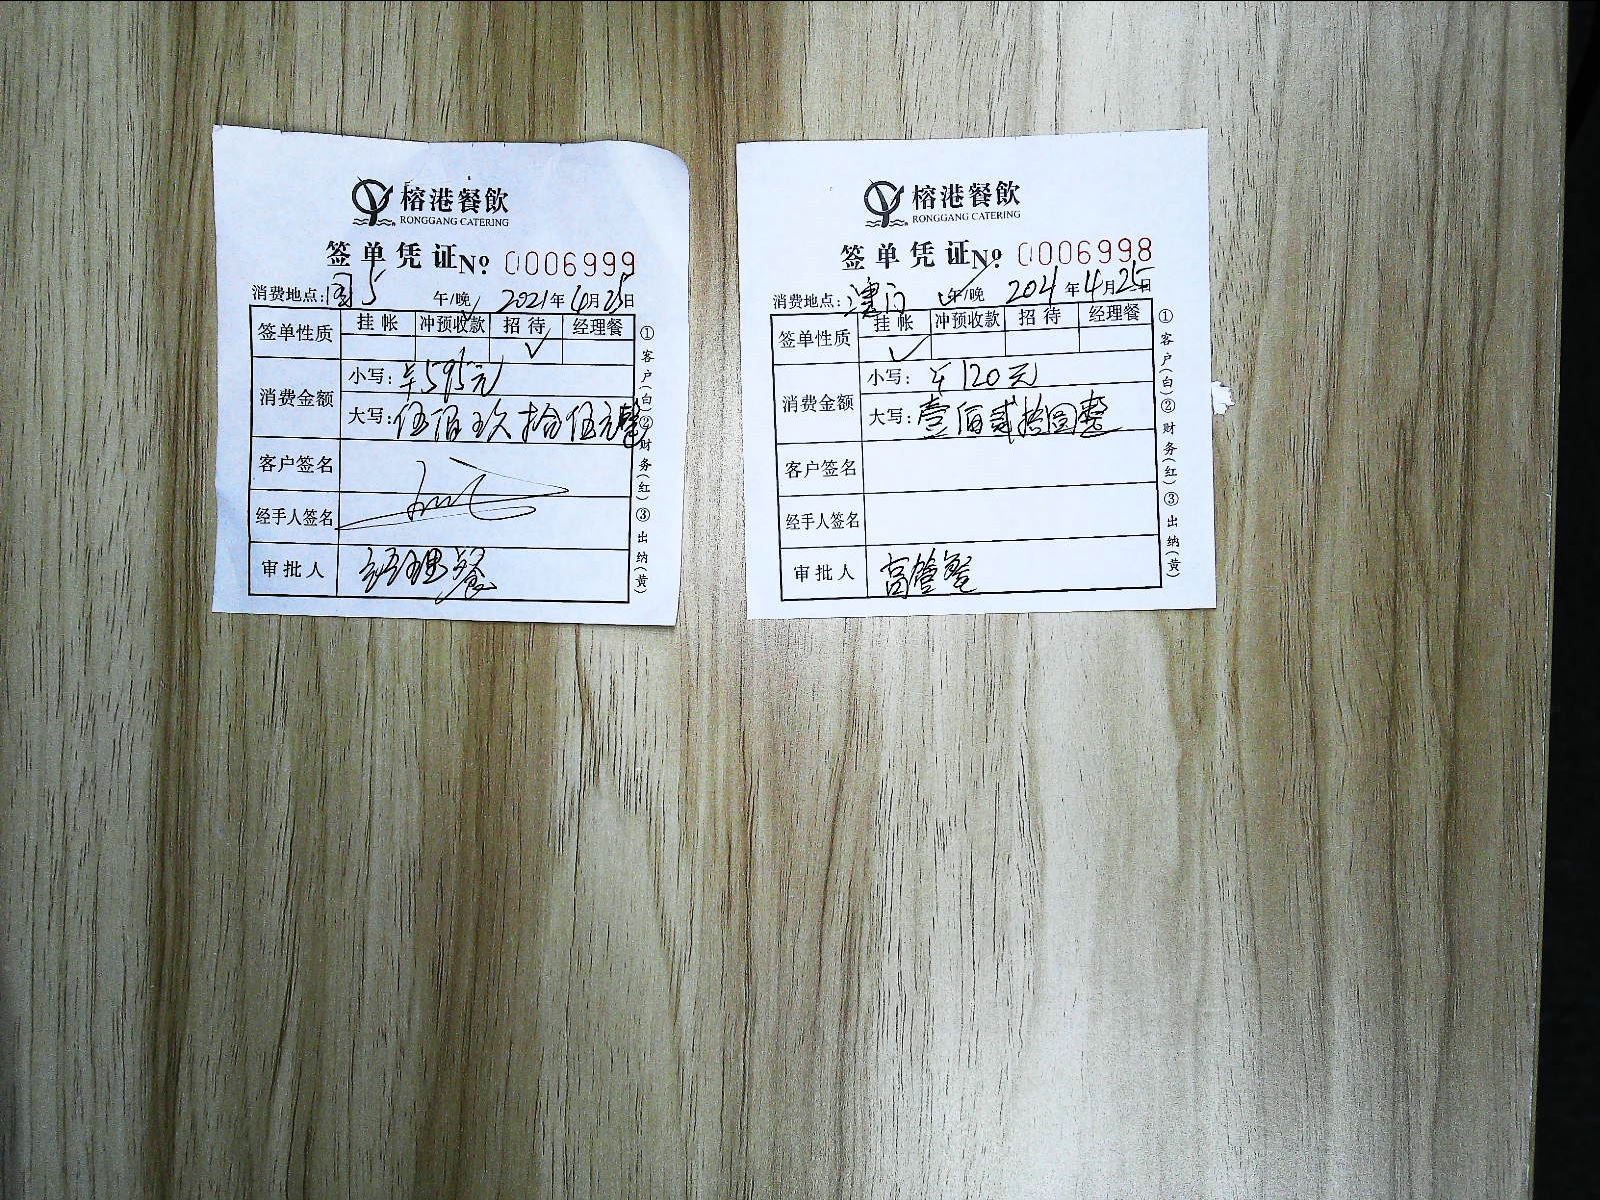 榕港餐飲
RONGGANG CATERING
签单凭证 No. 0006999
消费地点: 5 午/晚 2021年4月25日
签单性质 挂帐 冲预收款 招待 经理餐
✓
消费金额 小写: ¥595元
大写: 伍佰玖拾伍元整
客户签名
经手人签名
审批人 经理餐
①客户(白)②财务(红)③出纳(黄)
榕港餐飲
RONGGANG CATERING
签单凭证 No. 0006998
消费地点: 澳门 午/晚 2021年4月25日
签单性质 挂帐 冲预收款 招待 经理餐
✓
消费金额 小写: ¥120元
大写: 壹佰贰拾圆整
客户签名
经手人签名
审批人 高管餐
①客户(白)②财务(红)③出纳(黄)